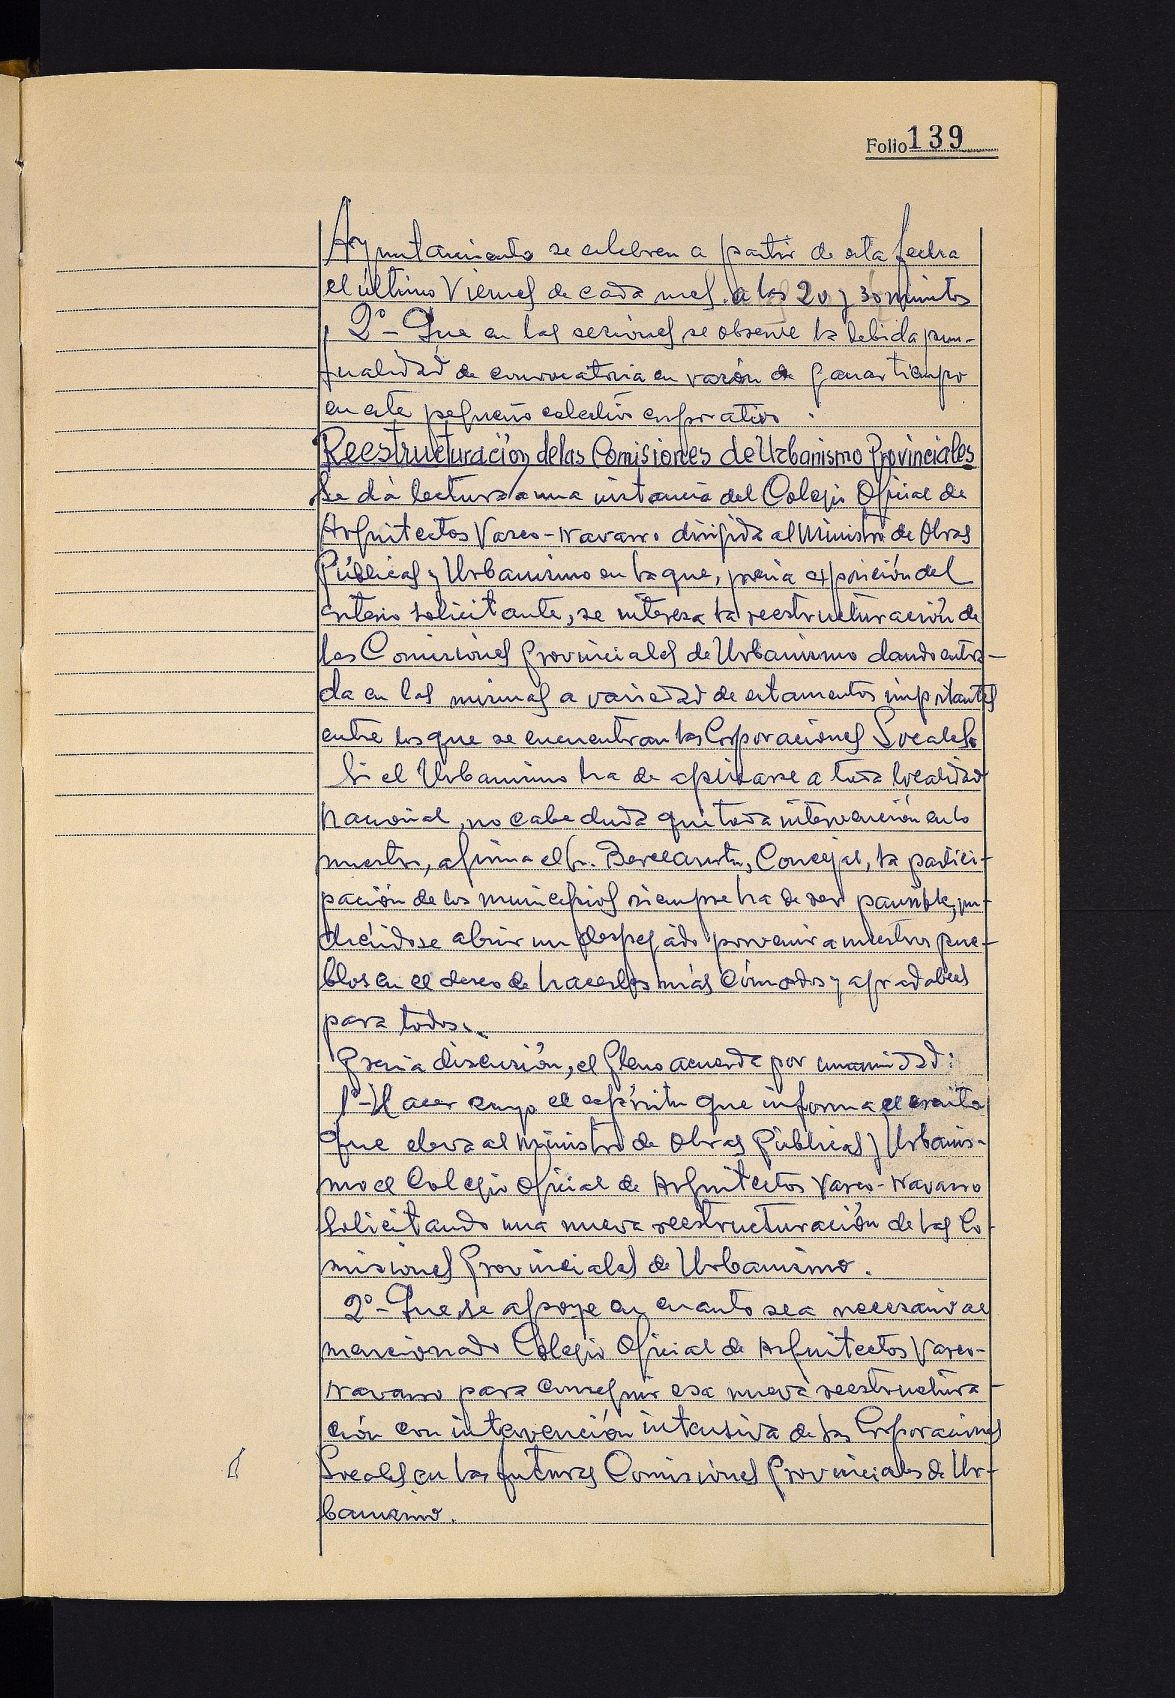 Folio 139
Ayuntamiento se celebren a partir de esta fecha
el último Viernes de cada mes. a las 20 y 30 minutos
2º- Que en las sesiones se observe la debida pun-
tualidad de convocatoria en razón de ganar tiempo
en este pequeño colectivo corporativo.
Reestructuración de las Comisiones de Urbanismo Provinciales
Se dá lectura a una instancia del Colegio Oficial de
Arquitectos Vasco-Navarro dirigida al Ministro de Obras
Públicas y Urbanismo en la que, previa exposición del
criterio solicitante, se interesa la reestructuración de
las Comisiones Provinciales de Urbanismo dando entra-
da en las mismas a variedad de estamentos importantes
entre los que se encuentran las Corporaciones Locales.
Si el Urbanismo ha de aplicarse a toda localidad
nacional, no cabe duda que toda intervención en lo
nuestro, afirma el Sr. Concejal, la partici-
pación de los municipios siempre ha de ser pausible, pu-
diéndose abrir un despejado porvenir a nuestros pue-
blos en el deseo de hacerlos más cómodos y agradables
para todos.
Previa discusión, el Pleno acuerda por unanimidad:
1º- Hacer suyo el espíritu que informa el escrito
que eleva al Ministro de Obras Públicas y Urbanis-
mo el Colegio Oficial de Arquitectos Vasco-Navarro
solicitando una nueva reestructuración de las Co-
misiones Provinciales de Urbanismo.
2º- Que se apoye en cuanto sea necesario al
mencionado Colegio Oficial de Arquitectos Vasco-
Navarro para conseguir esa nueva reestructura-
ción con intervención intensiva de las Corporaciones
Locales en las futuras Comisiones Provinciales de Ur-
banismo.